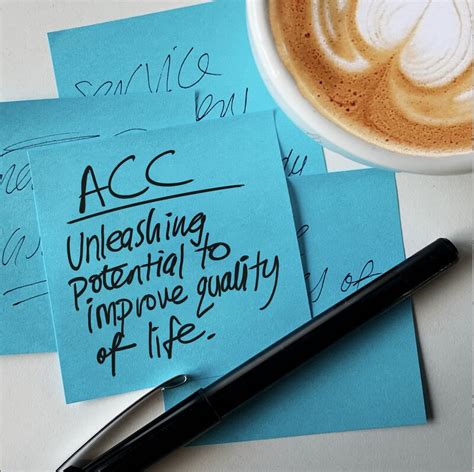 service
ACC
Unleashing
potential to
improve quality
of life.
of